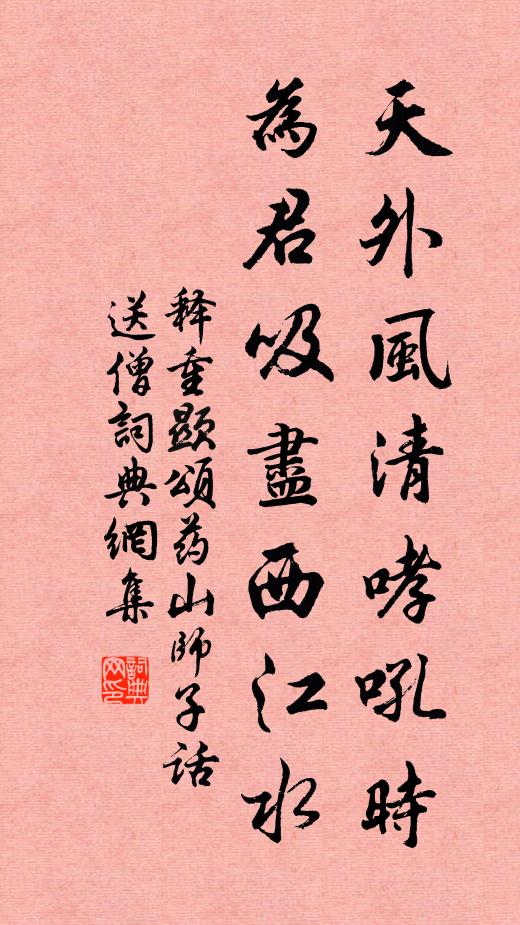 天外風清哮吼時
為君吸盡西江水
释重顯頌药山師子話
送僧詞典網集
詞典網印